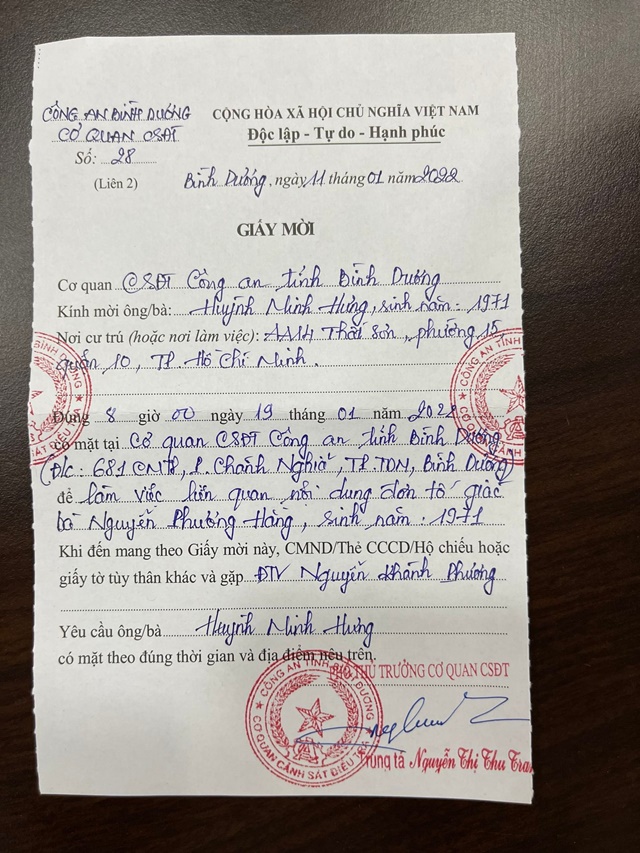 CÔNG AN BÌNH DƯƠNG
CƠ QUAN CSĐT
Số: 28
(Liên 2)
CỘNG HÒA XÃ HỘI CHỦ NGHĨA VIỆT NAM
Độc lập - Tự do - Hạnh phúc
Bình Dương, ngày 11 tháng 01 năm 2022
GIẤY MỜI
Cơ quan CSĐT Công an tỉnh Bình Dương
Kính mời ông/bà: Huỳnh Minh Hưng, sinh năm: 1971
Nơi cư trú (hoặc nơi làm việc): AA14 Thất Sơn, phường 15
quận 10, TP. Hồ Chí Minh.
Đúng 8 giờ 00 ngày 19 tháng 01 năm 2022
có mặt tại Cơ quan CSĐT Công an tỉnh Bình Dương
(Đ/c: 681 CMT8, P. Chánh Nghĩa, TP. TDM, Bình Dương)
để làm việc liên quan nội dung đơn tố giác
bà Nguyễn Phương Hằng, sinh năm: 1971
Khi đến mang theo Giấy mời này, CMND/Thẻ CCCD/Hộ chiếu hoặc
giấy tờ tùy thân khác và gặp ĐTV Nguyễn Khánh Phương
Yêu cầu ông/bà Huỳnh Minh Hưng
có mặt theo đúng thời gian và địa điểm nêu trên.
THỦ TRƯỞNG CƠ QUAN CSĐT
CÔNG AN TỈNH BÌNH DƯƠNG
CƠ QUAN CẢNH SÁT ĐIỀU
Trung tá Nguyễn Thị Thu Tran
BÌNH DƯƠNG
CÔNG AN TỈNH